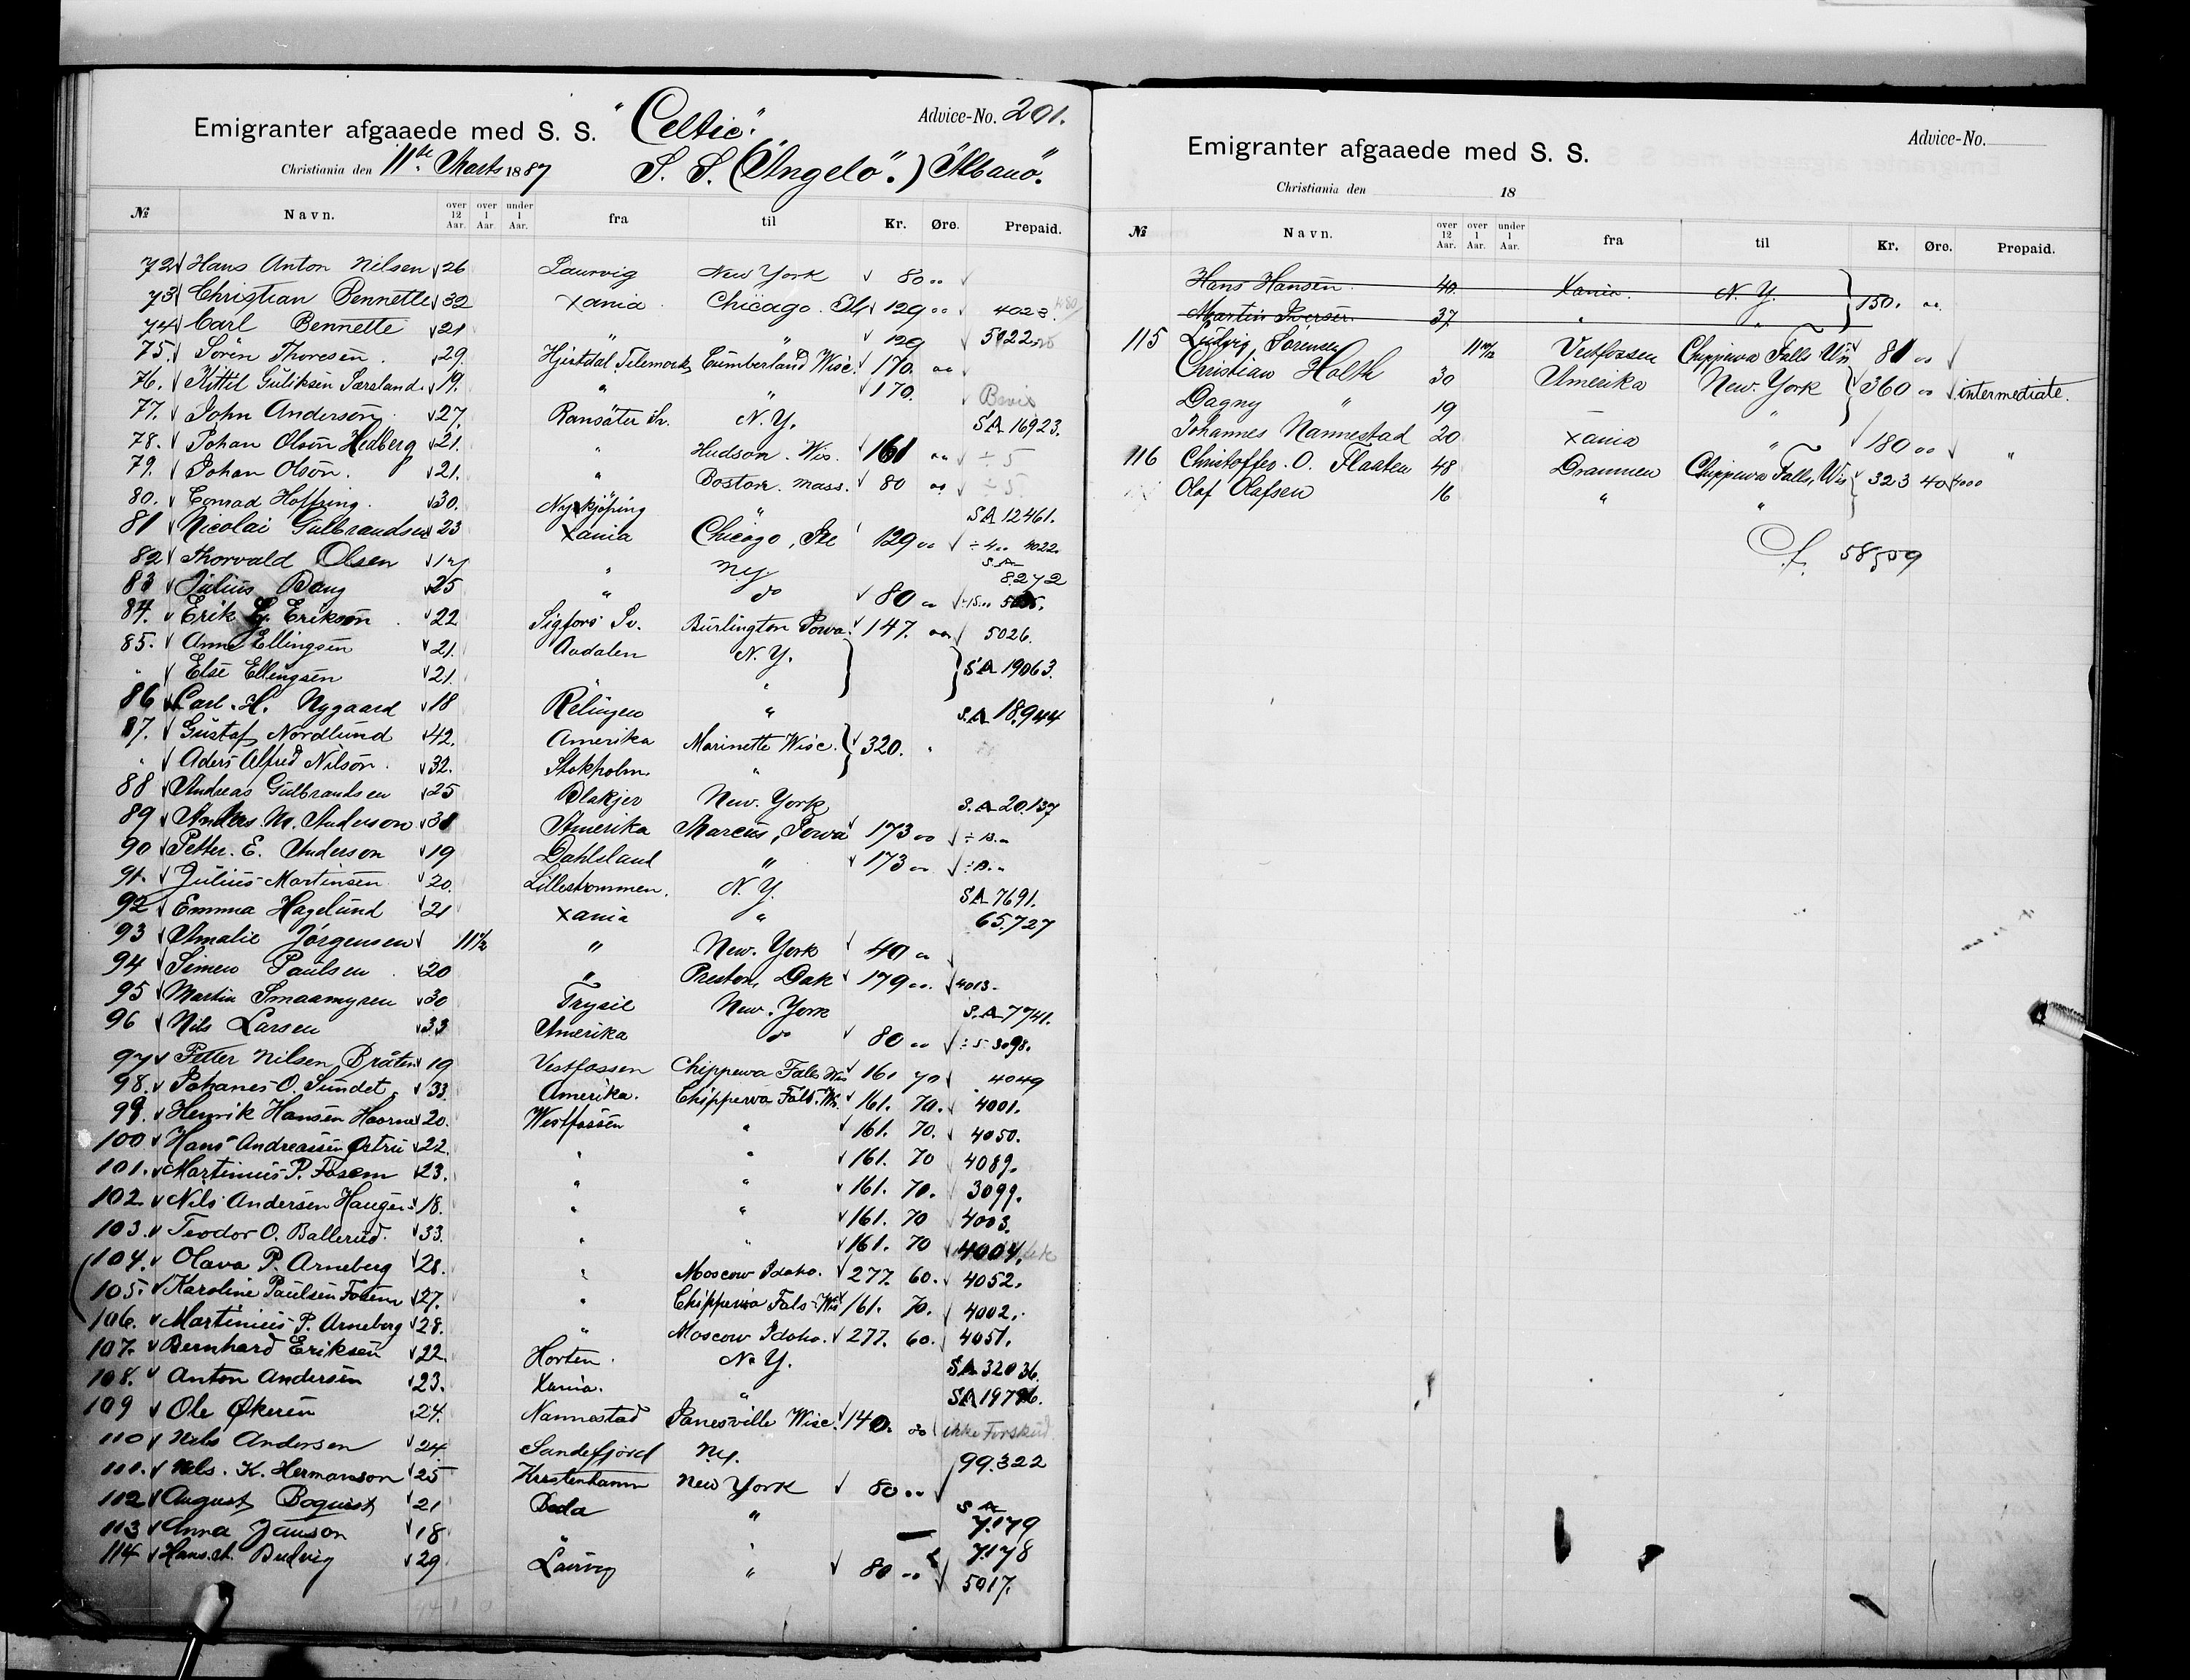 Emigranter afgaaede med S. S. "Celtic". Advice-No. 201.
Christiania den 11te Marts 1887 S. S. ("Angelo".) "Albano".
№ Navn. over 12 Aar. over 1 Aar. under 1 Aar. fra til Kr. Øre. Prepaid.
72 Hans Anton Nilsen 26 Laurvig New York 80 "
73 Christian Bennette 32 Xania Chicago. Ills 129 " 4023
74 Carl Bennette 21 " " 129 5022
75. Sören Thoresen 29 Hjertdal Telemark Cumberland Wisc. 170. "
76. Kittil Guliksen Særsland 19. " " 170. Bevis
77. John Andersen 27. Ransäter N. Y. SA 16923.
78. Johan Olsön Hedberg 21. " Hudson. Wis. 161 " ÷ 5
79. Johan Olsön. 21. " Boston. Mass. 80 " ÷ 5.
80. Conrad Hoffring. 30. Nykjöping " SA 12461.
81 Nicolai Gulbrandsen 23 Xania Chicago, Ill 129 " ÷ 4 " 4022.
82 Thorvald Olsen 17 " N.Y. S.A 8272
83 Julius Bang 25 " do 80 " ÷15 "
84. Erik G. Erikson 22 Sigfors Sv. Burlington Iowa. 147. " 5026.
85. Anne Ellingsen 21. Aadalen N. Y. SA 19063.
" Else Ellingsen 21. "
86 Carl. H. Nygaard 18 Relingen " S.A 18944
87. Gustaf Nordlund 42. Amerika Marinette Wisc. 320. "
" Aders Alfred Nilsön. 32. Stokholm. "
88 Andreas Gulbrandsen 25 Blakjer New. York S.A 20.137
89 Anders. M. Anderson 31 Amerika Marcus, Iowa 173 "
90 Petter. E. Anderson 19 Dahlsland " 173 "
91. Julius Martinsen 20. Lillestrommen. N. Y. SA 7691.
92 Emma Hagelund 21 Xania " 65.727
93 Amalie Jörgensen 11 " New. York 40 "
94 Simen Paulsen 20 " Preston, Dak 179 " 4013
95 Martin Smaamyren 30 Trysil New. York S.A 7741.
96 Nils Larsen 33 Amerika do 80 " ÷ 5 3098.
97 Petter Nilsen Bråten 19 Vestfossen Chippewa Falls Wis 161 70 4049
98. Johanes O. Sundet 33. Amerika. Chippewa Fals. Wis. 161. 70. 4001.
99. Henrik Hansen Haarne 20. Westfossen " 161. 70. 4050.
100 Hans Andreassen Østru 22. " " 161. 70 4089.
101. Martinius P. Fosem 23. " " 161. 70. 3099.
102. Nils Andersen Haugen 18. " " 161. 70 4003.
103. Teodor O. Ballerud. 33. " " 161. 70 4004.
104. Olava P. Arneberg 28. " Moscow Idaho. 277. 60. 4052.
105. Karoline Paulsen Fosem 27. " Chippewa Fals Wis 161. 70. 4002.
106. Martinius P. Arneberg 28. " Moscow Idaho. 277. 60. 4051.
107. Bernhard Eriksen 22. Horten. N. Y. SA 32036.
108. Anton Andersen 23. Xania. "
109 Ole Økeren 24. Nannestad Janesville Wisc. 140. " ikke Forskud
110 Nils Andersen 24. Sandefjord N.Y. 99.322
111. Nils. K. Hermanson 25 Kristenhamn New York 80 "
112 August Boquist 21 " S A 7179
113 Anna Janson 18 " " 7178
114 Hans. A. Budvig 29 Laurvig " 80 " 5017.
Emigranter afgaaede med S. S. Advice-No.
Christiania den 18
№ Navn. over 12 Aar. over 1 Aar. under 1 Aar. fra til Kr. Øre. Prepaid.
Hans Hansen. 40. Xania. N. Y. 150. "
Martin Iversen. 37. " "
115 Ludvig Sörensen 11 10/12 Vestfossen Chippewa Falls Wis 81 "
Christian Holth 30 Amerika New. York 360 " intermediate.
Dagny " 19 "
Johannes Nannestad 20 Xania " 180 " "
116 Christoffer. O. Flaaten 48 Drammen Chippewa Falls, Wis 323 40 4000
Olaf Olafsen 16 " "
58,509